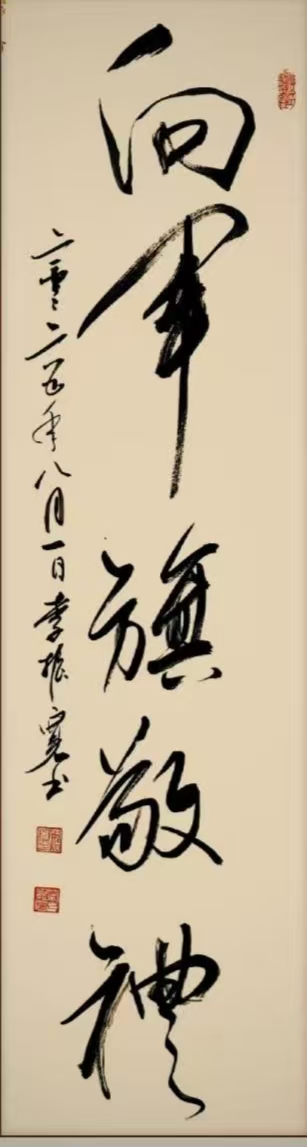 向军旗敬礼
二零二五年八月一日李振宽书